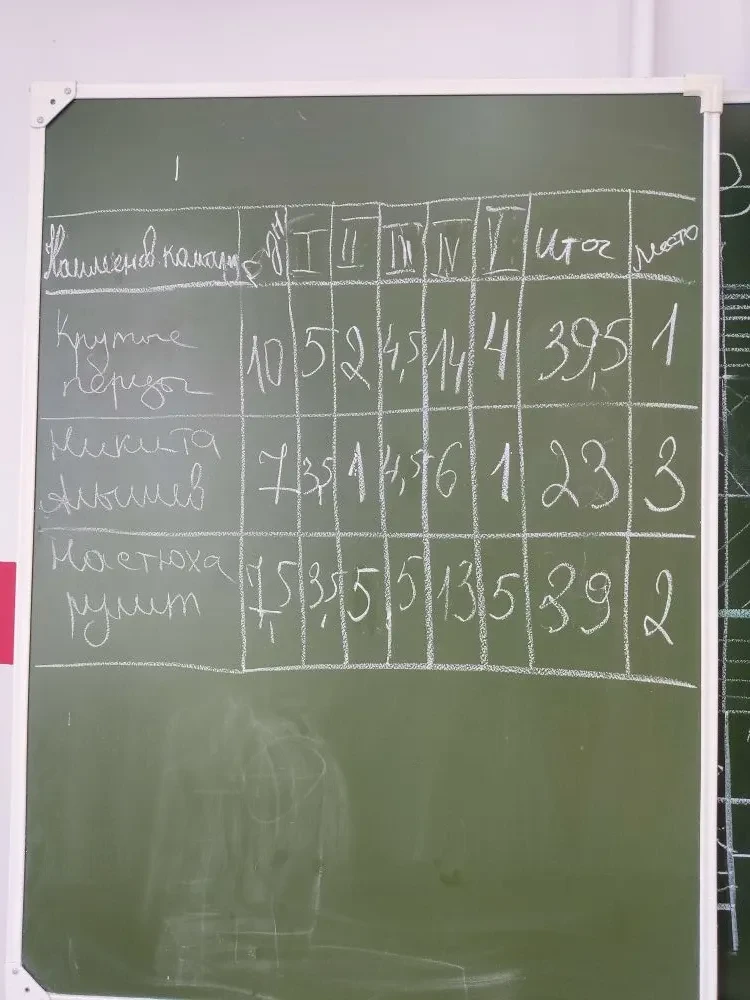 Наименов. команды р. дм I II III IV V Итог Место
Крутые
перцы 10 5 2 4,5 14 4 39,5 1
Никита
7 3,5 1 4,5 6 1 23 3
Настюха
рулит 7,5 3,5 5 5 13 5 39 2